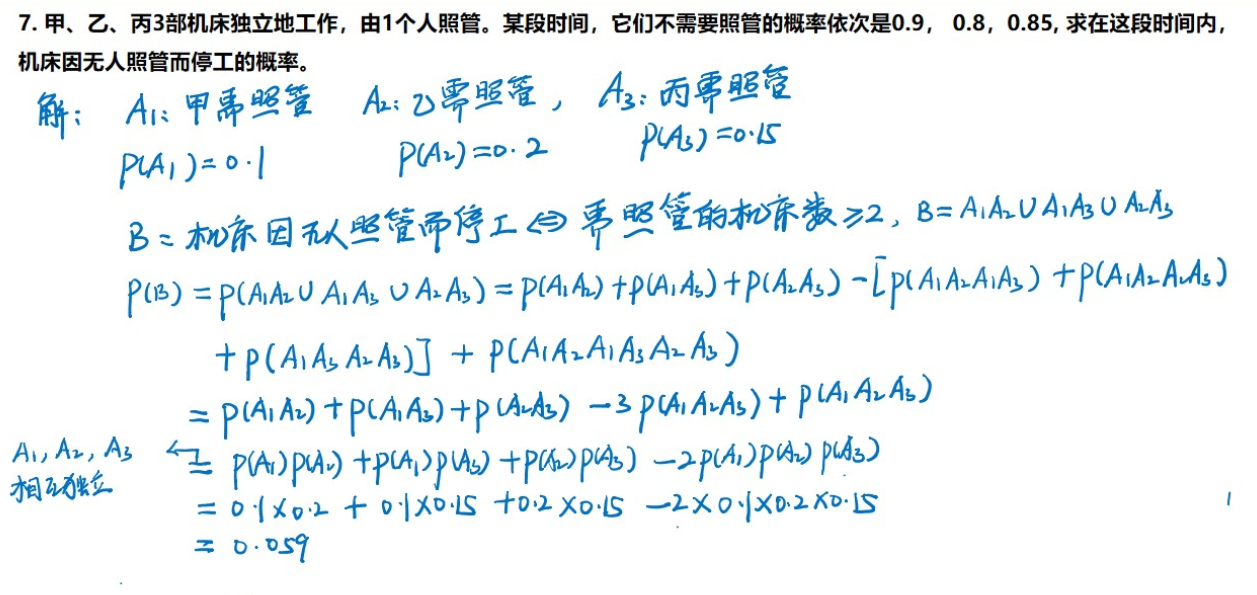 7. 甲、乙、丙3部机床独立地工作，由1个人照管。某段时间，它们不需要照管的概率依次是0.9， 0.8，0.85, 求在这段时间内，
机床因无人照管而停工的概率。
解： A₁: 甲需照管 A₂: 乙需照管， A₃: 丙需照管
P(A₁)=0.1 P(A₂)=0.2 P(A₃)=0.15
B = 机床因无人照管而停工 ⇔ 需照管的机床数 ≥2, B= A₁A₂∪A₁A₃∪A₂A₃
P(B) = P(A₁A₂∪A₁A₃∪A₂A₃) = P(A₁A₂)+P(A₁A₃)+P(A₂A₃) -[P(A₁A₂A₁A₃) +P(A₁A₂A₂A₃)
+P(A₁A₃A₂A₃)] + P(A₁A₂A₁A₃A₂A₃)
= P(A₁A₂)+P(A₁A₃)+P(A₂A₃) -3P(A₁A₂A₃)+ P(A₁A₂A₃)
A₁, A₂, A₃ ← = P(A₁)P(A₂)+P(A₁)P(A₃)+P(A₂)P(A₃) -2P(A₁)P(A₂)P(A₃)
相互独立
= 0.1×0.2 + 0.1×0.15 +0.2×0.15 -2×0.1×0.2×0.15
= 0.059